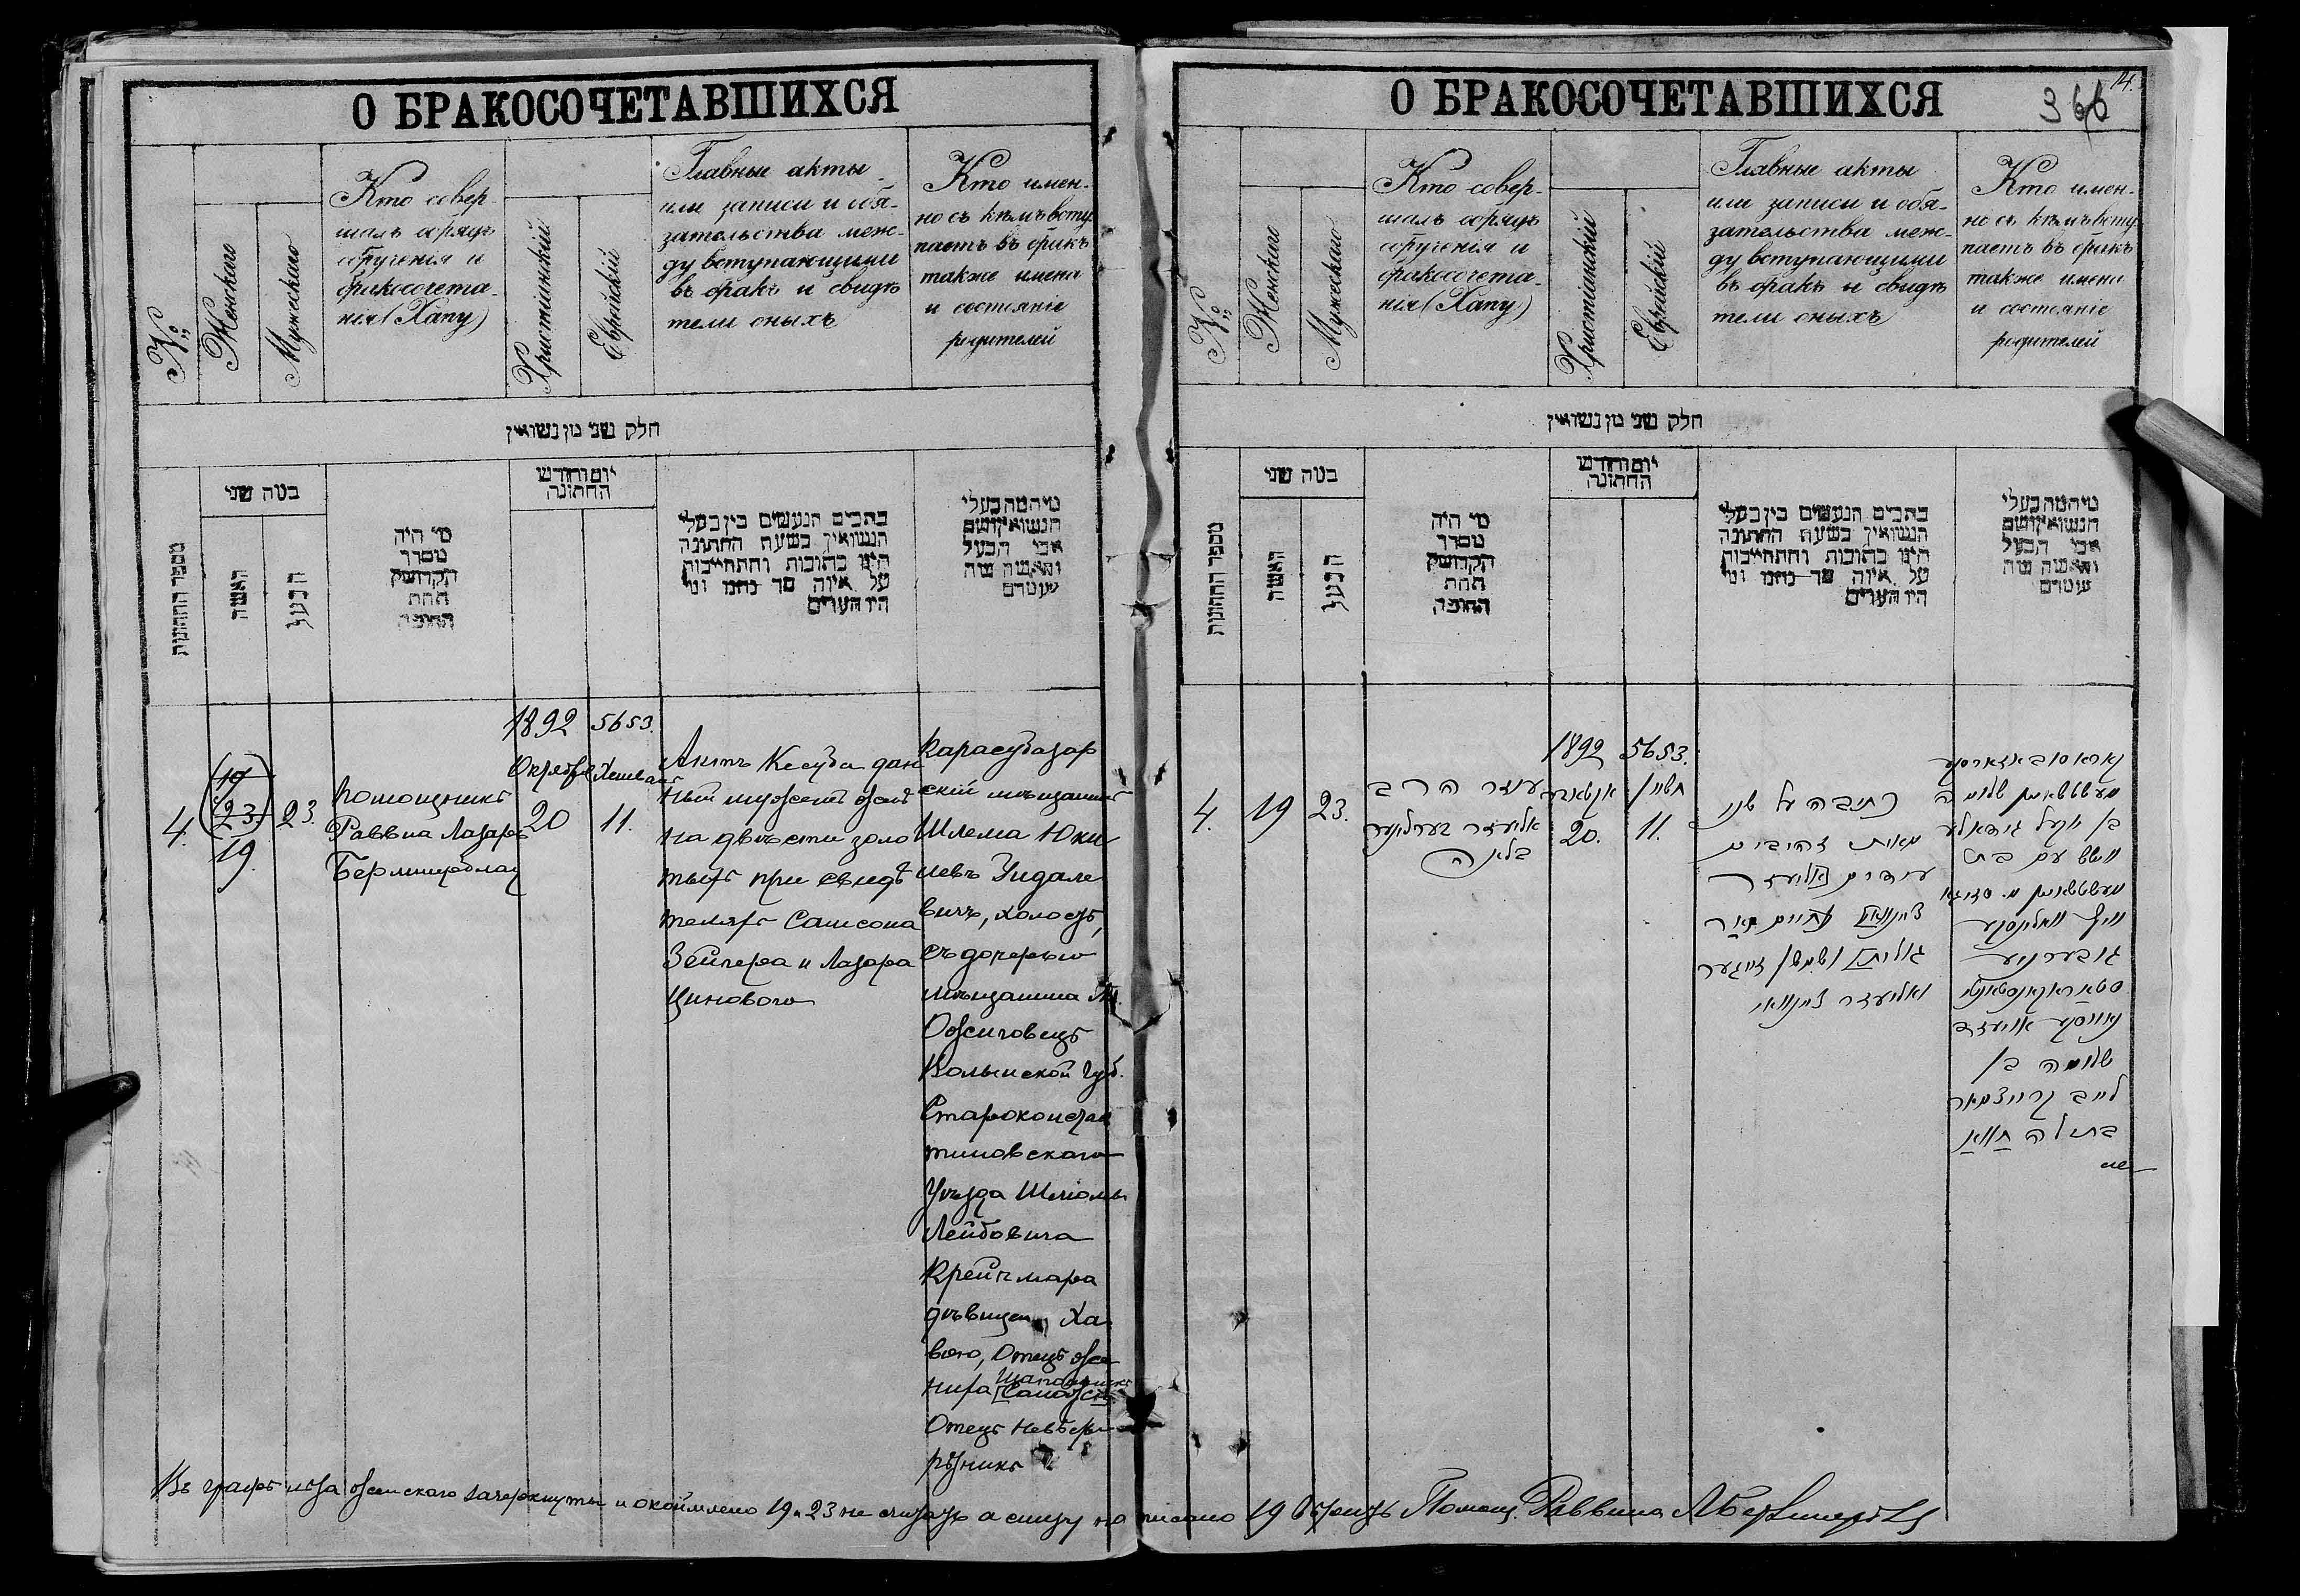 О БРАКОСОЧЕТАВШИХСЯ
№
Женскаго
Мужескаго
Кто совер-
шалъ обрядъ
обрученія и
бракосочета-
нія (Хапу)
Христіанскій
Еврейскій
Главные акты
или записи и обя-
зательства меж-
ду вступающими
въ бракъ и свидѣ
тели оныхъ
Кто имен-
но съ кѣмъ всту
паетъ въ бракъ
также имена
и состояніе
родителей
חלק שני מן נשואין
מספר החתונות
כמה שני
האשה
הבעל
מי היה
מסדר
הקדושין
תחת
החופה
יום וחודש
החתונה
כתבים הנעשים בין בעלי
הנשואין בשעת החתונה
היינו כתובות והתחייבות
על איזה סך נחמו ומי
היו העדים
מי המה בעלי
הנשואין ושם
אבי הבעל
והאשה ומה
מעמדם
4.
19
23
19.
23.
Помощникъ
Раввина Лазаръ
1892
Октября
20
5653.
Хешванъ
11.
Актъ Кесуба дан
ный мужемъ женѣ
на двѣсти золо
тыхъ при свидѣ
теляхъ Самсона
Зейгера и Лазара
Цинового
Карасубазар
скій мѣщанинъ
Шлема Юки
левъ
вичъ, холостъ,
съ дочерью
мѣщанина М.
Ожиговецъ
Волынской Губ.
Староконстан
тиновскаго
Уѣзда Шлiомы
Лейбовича
Крейчмара
дѣвицею Ха
вою, Отецъ же
ниха
Отецъ невѣсты
рѣзникъ
О БРАКОСОЧЕТАВШИХСЯ
14.
366
№
Женскаго
Мужескаго
Кто совер-
шалъ обрядъ
обрученія и
бракосочета-
нія (Хапу)
Христіанскій
Еврейскій
Главные акты
или записи и обя-
зательства меж-
ду вступающими
въ бракъ и свидѣ
тели оныхъ
Кто имен-
но съ кѣмъ всту
паетъ въ бракъ
также имена
и состояніе
родителей
חלק שני מן נשואין
מספר החתונות
כמה שני
האשה
הבעל
מי היה
מסדר
הקדושין
תחת
החופה
יום וחודש
החתונה
כתבים הנעשים בין בעלי
הנשואין בשעת החתונה
היינו כתובות והתחייבות
על איזה סך נחמו ומי
היו העדים
מי המה בעלי
הנשואין ושם
אבי הבעל
והאשה ומה
מעמדם
4.
19
23.
עוזר הרב
אליעזר
1892
אקטאבר
20.
5653.
חשון
11.
כתובה על שני
מאות זהובים
עדים אליעזר
זייגער
ואליעזר צינאווי
קאראסובאזארסקי
שלומה
בן יוקל
עם בת
גובערניע
סטאראקאנסטאנטי
שלומה בן
לייב קרייצמאר
בתולה חוא
Въ графѣ лѣта женскаго зачеркнуты и окоймлено 19 и 23 не считать а снизу написано 19 вѣрить Помощ. Раввина